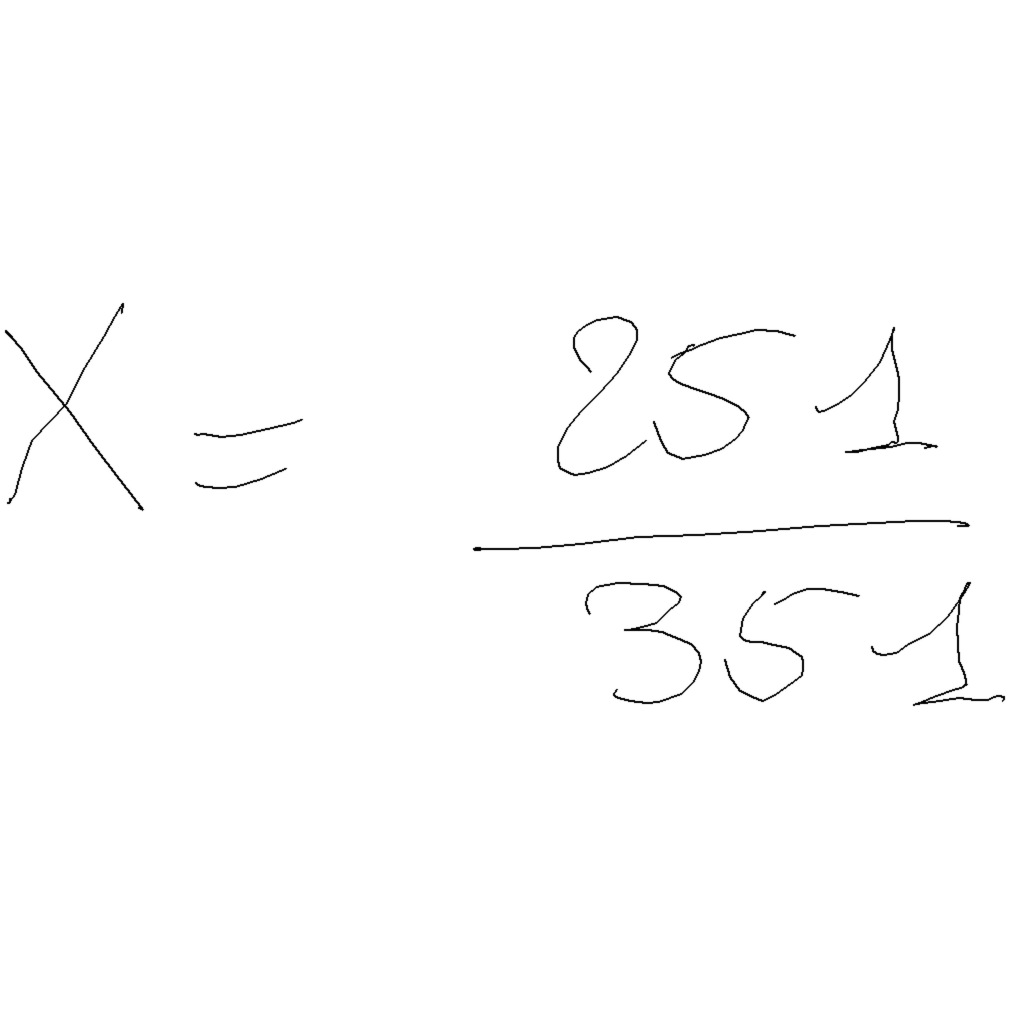 X = 251/351